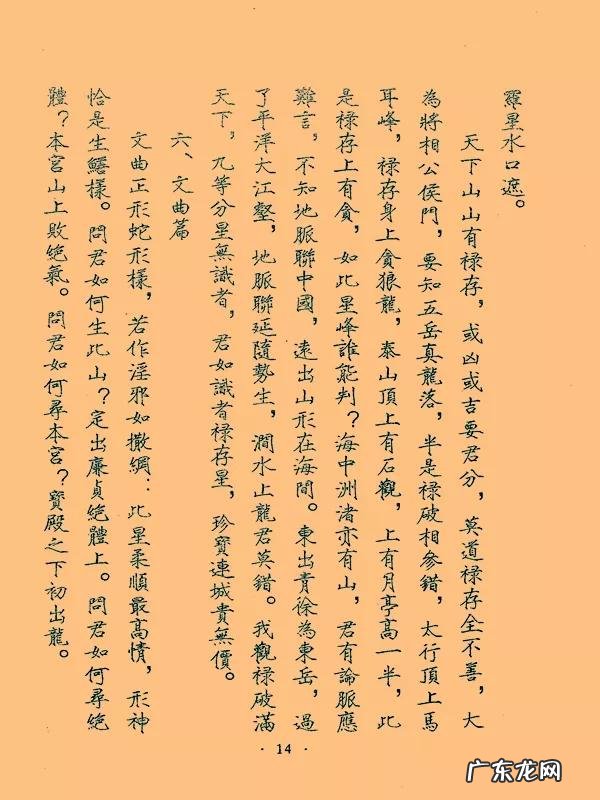 羅星水口遮。
天下山山有祿存，或凶或吉要君分，莫道祿存全不善，大
為將相公侯門，要知五岳真龍落，半是祿破相參錯，太行頂上馬
耳峰，祿存身上貪狼龍，泰山頂上有石觀，上有月亭高一半，此
是祿存上有貪，如此星峰誰能判？海中洲渚亦有山，君有論脈應
難言，不知地脈聯中國，遠出山形在海間。東出青徐為東岳，過
了平洋大江壑，地脈聯延隨勢生，澗水上龍君莫錯。我觀祿破滿
天下，九等分星無識者，君如識者祿存星，珍寶連城貴無價。
六、文曲篇
文曲正形蛇形樣，若作淫邪如撒網：此星柔順最高情，形神
恰是生鱔樣。問君如何生此山？定出廉貞絕體上。問君如何尋絕
體？本宮山上敗絕氣。問君如何尋本宮？寶殿之下初出龍。
· 14 ·
广东龙网